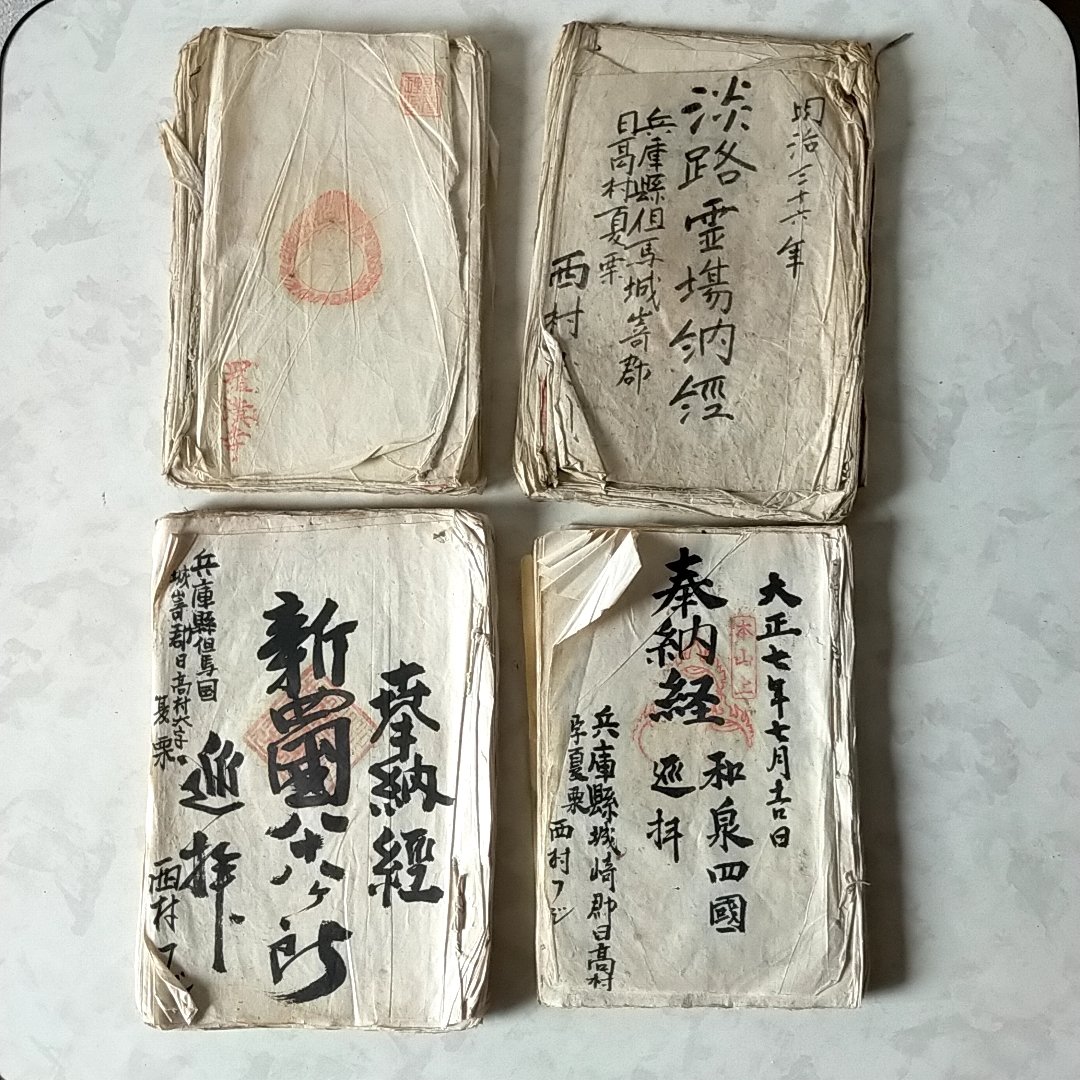 羅漢寺
明治三十六年
淡路霊場納經
兵庫縣但馬城崎郡
日高村夏栗
西村
奉納經
新四國八十八ヶ所
巡拝
兵庫縣但馬國
城崎郡日高村大字
夏栗
西村フジ
大正七年七月十吉日
奉納経
和泉四國
巡拝
兵庫縣城崎郡日高村
字夏栗
西村フジ
本山上